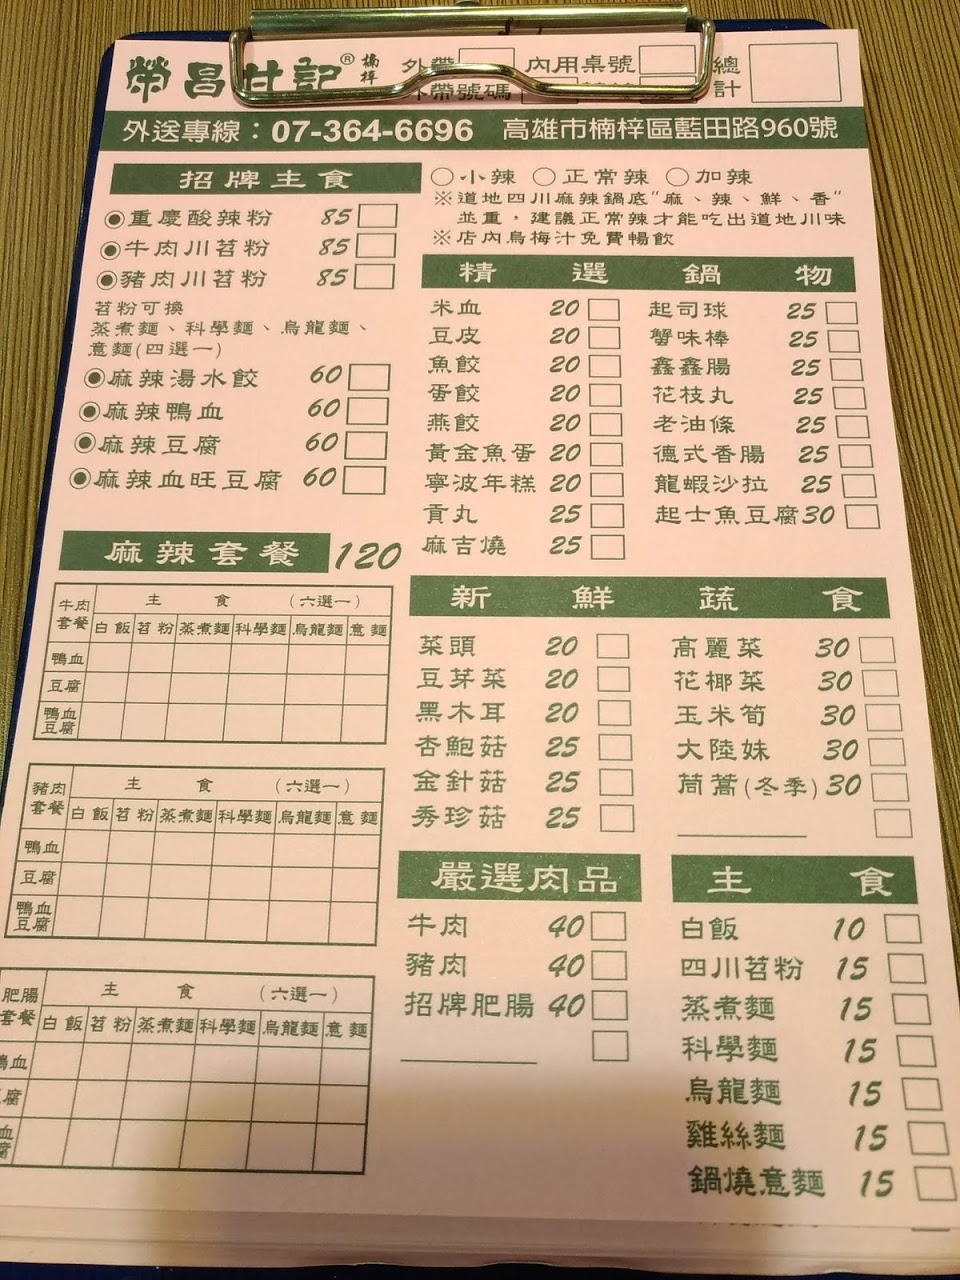 榮昌甘記® 楠梓 外帶 內用桌號 總計
外帶號碼
外送專線：07-364-6696 高雄市楠梓區藍田路960號
招牌主食
◉重慶酸辣粉 85
◉牛肉川苕粉 85
◉豬肉川苕粉 85
苕粉可換
蒸煮麵、科學麵、烏龍麵、
意麵(四選一)
◉麻辣湯水餃 60
◉麻辣鴨血 60
◉麻辣豆腐 60
◉麻辣血旺豆腐 60
○小辣 ○正常辣 ○加辣
※道地四川麻辣鍋底"麻、辣、鮮、香"
並重，建議正常辣才能吃出道地川味
※店內烏梅汁免費暢飲
精選鍋物
米血 20
豆皮 20
魚餃 20
蛋餃 20
燕餃 20
黃金魚蛋 20
寧波年糕 20
貢丸 25
麻吉燒 25
起司球 25
蟹味棒 25
鑫鑫腸 25
花枝丸 25
老油條 25
德式香腸 25
龍蝦沙拉 25
起士魚豆腐 30
麻辣套餐 120
牛肉套餐 主食 (六選一)
白飯 苕粉 蒸煮麵 科學麵 烏龍麵 意麵
鴨血
豆腐
鴨血豆腐
豬肉套餐 主食 (六選一)
白飯 苕粉 蒸煮麵 科學麵 烏龍麵 意麵
鴨血
豆腐
鴨血豆腐
肥腸套餐 主食 (六選一)
白飯 苕粉 蒸煮麵 科學麵 烏龍麵 意麵
鴨血
腐
血腐
新鮮蔬食
菜頭 20
豆芽菜 20
黑木耳 20
杏鮑菇 25
金針菇 25
秀珍菇 25
高麗菜 30
花椰菜 30
玉米筍 30
大陸妹 30
茼蒿(冬季) 30
嚴選肉品
牛肉 40
豬肉 40
招牌肥腸 40
主食
白飯 10
四川苕粉 15
蒸煮麵 15
科學麵 15
烏龍麵 15
雞絲麵 15
鍋燒意麵 15